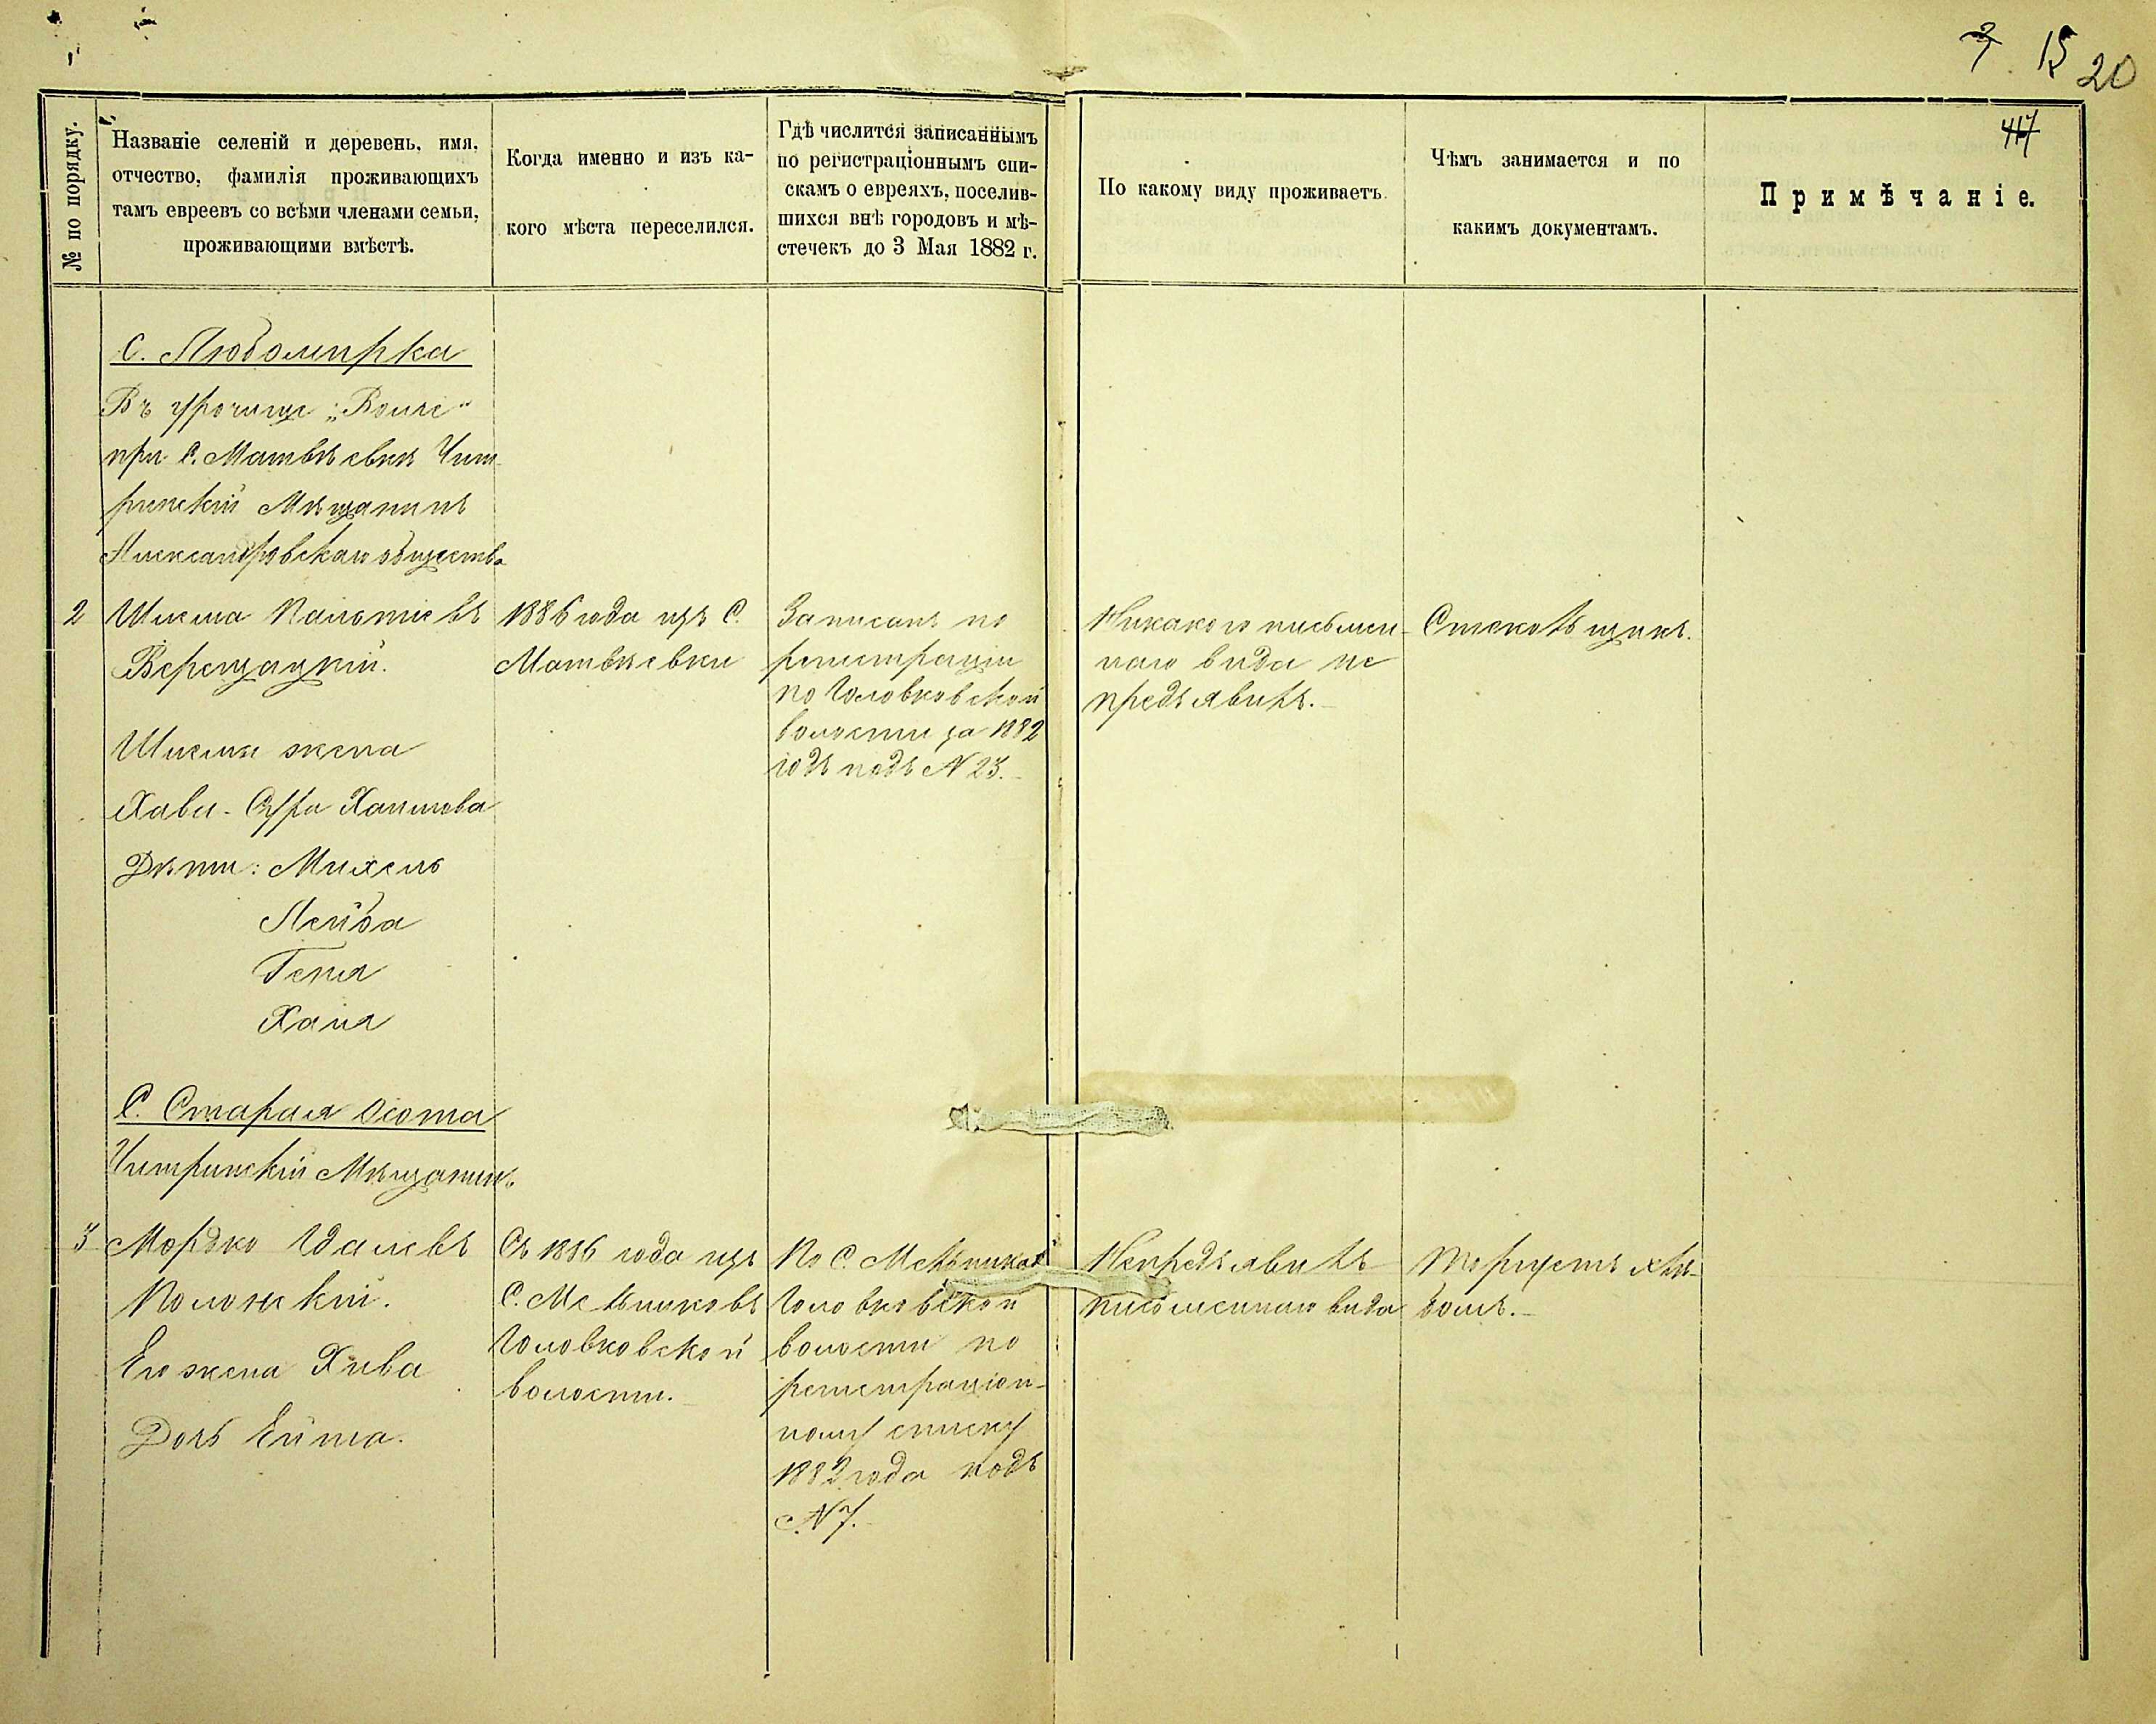 7 15 20
417
№ по порядку.
Названіе селеній и деревень, имя,
отчество, фамилія проживающихъ
тамъ евреевъ со всѣми членами семьи,
проживающими вмѣстѣ.
Когда именно и изъ ка-
кого мѣста переселился.
Гдѣ числится записаннымъ
по регистраціоннымъ спи-
скамъ о евреяхъ, поселив-
шихся внѣ городовъ и мѣ-
стечекъ до 3 Мая 1882 г.
По какому виду проживаетъ.
Чѣмъ занимается и по
какимъ документамъ.
Примѣчаніе.
С. Любомирка
Въ урочище
при С. Матвѣевкѣ Чиги-
ринскій Мѣщанинъ
Александровскаго общества
2 Шлема
Верещацкій.
Шлемы жена
Хава-Сура Хаимова
Дѣти: Михель
Лейба
Геня
Хаия
1886 года изъ С.
Матвѣевки
Записанъ по
регистраціи
по Головковской
волости за 1882
годъ подъ № 23.
Никакого письмен-
наго вида не
предъявилъ.
Стекольщикъ.
С. Старая Осота
Чигиринскій Мѣщанинъ
3 Мордко
Полонскій.
Его жена Хива
Дочь Ейта.
Съ 1886 года изъ
С. Мельниковъ
Головковской
волости.
По С. Мельникамъ
Головковской
волости по
регистраціон-
ному списку
1882 года подъ
№ 7.
Непредъявилъ
письменнаго вида
Торгуетъ хлѣ-
бомъ.